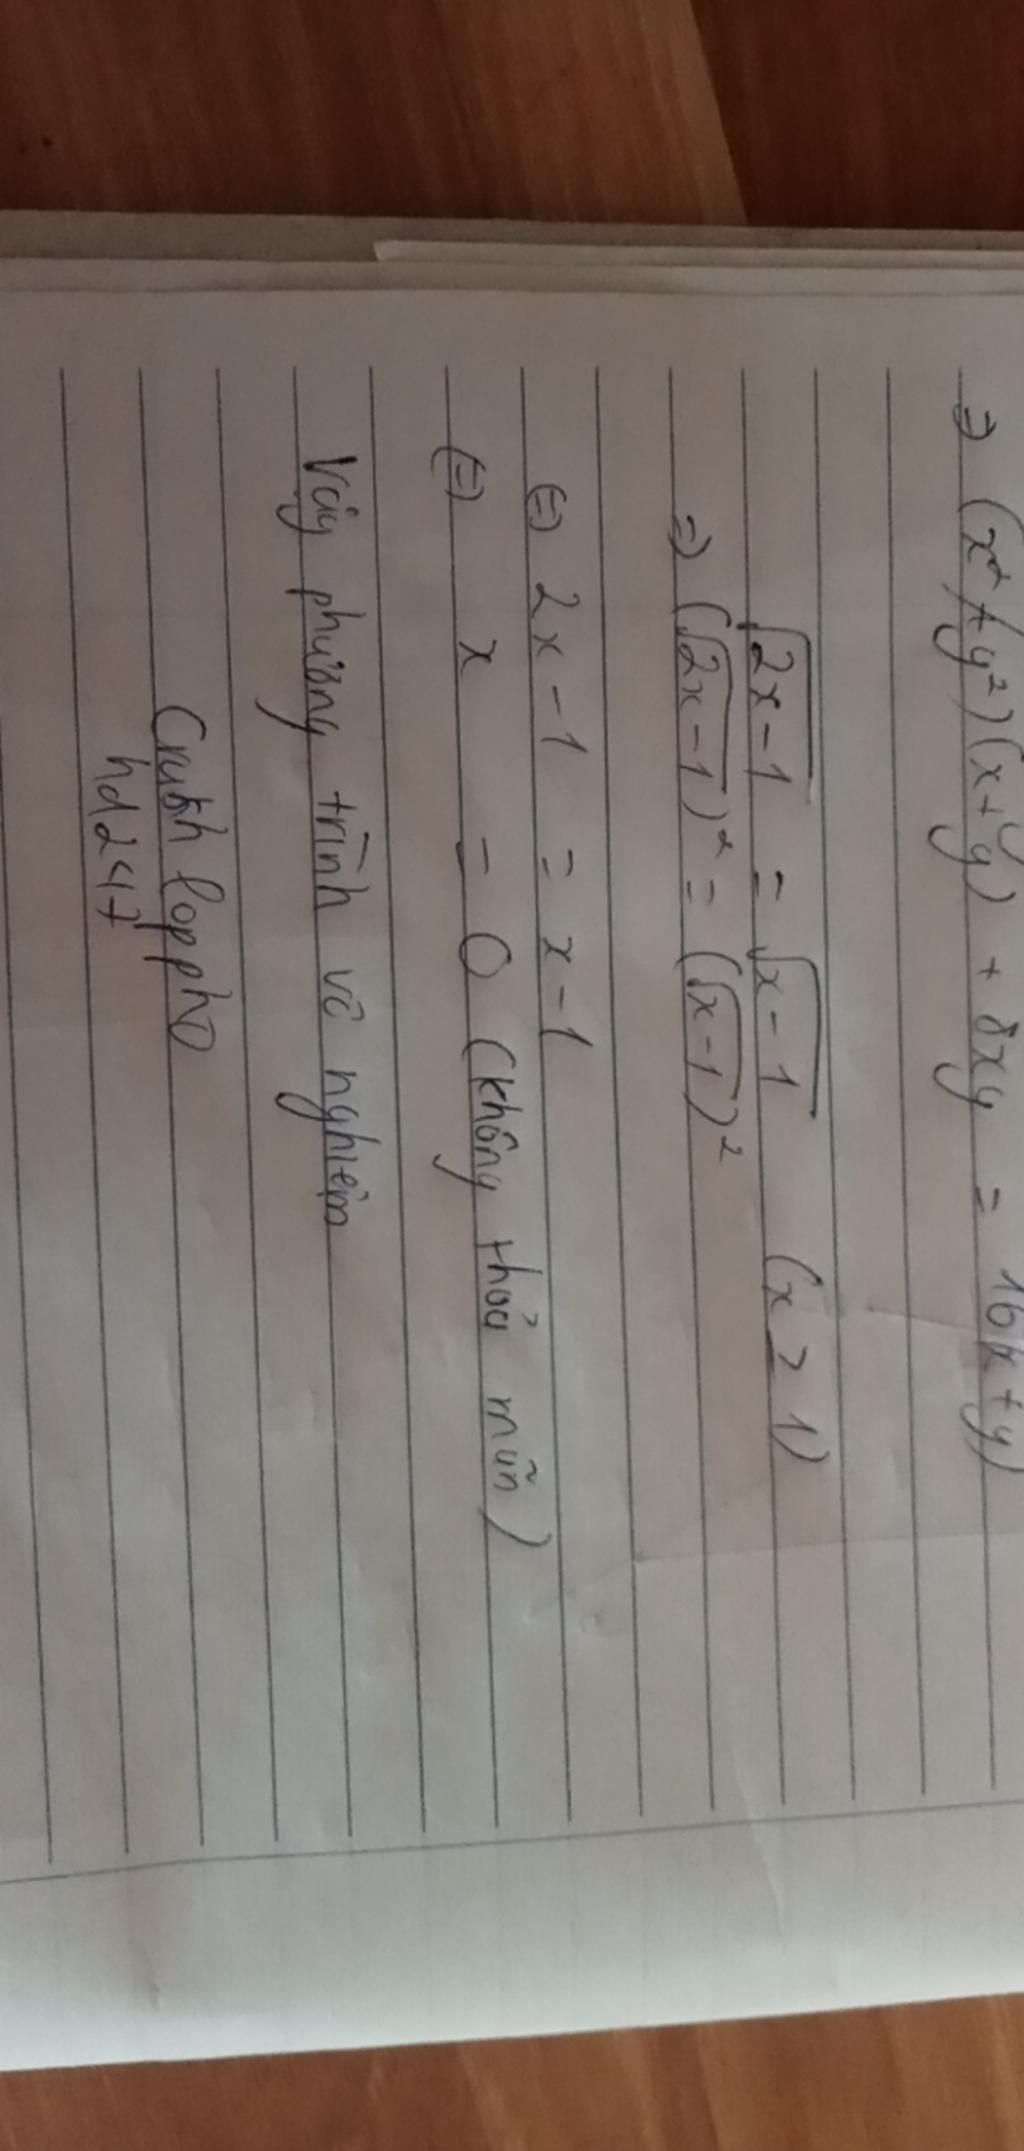 => (x² + y²)(x+y) + 8xy = 16(x+y)
√2x-1 = √x-1 (x > 1)
=> (√2x-1)² = (√x-1)²
(=) 2x - 1 = x - 1
(=) x = 0 (không thỏa mãn)
Vậy phương trình vô nghiệm
lọp phó
hd247